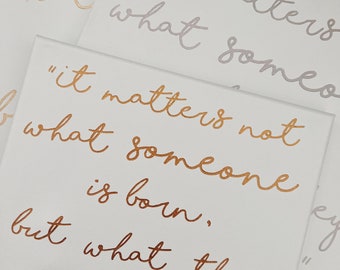 "it matters not
what someone
is born,
but what th
matters
what someon
ey
"